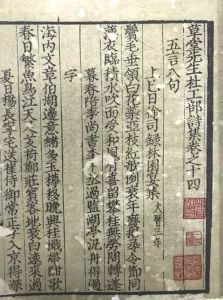 草堂先生杜工部詩集卷之十四
五言八句
上巳日徐司録林園宴集 大曆三年
鬢毛垂領白花蘂亞枝紅欹倒衰年廢招尋令節同
薄衣臨積水吹面受和風有喜留攀桂無勞問轉蓬
暮春陪李尚書李中丞過鄭監湖亭泛舟得過
字
海内文章伯湖邊意緒多玉樽移晚興桂檝帶酣歌
春日繁魚鳥江天足芰荷鄭莊賓客地衰白遠來過
夏日楊長寧宅送崔侍御常正字入京得深